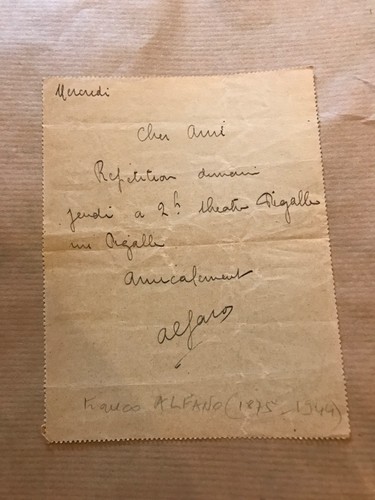 Mercredi
Cher Ami
Répétition demain
jeudi a 2h theatre Pigalle
rue Pigalle
Amicalement
Alfano
Franco ALFANO (1875-1944)